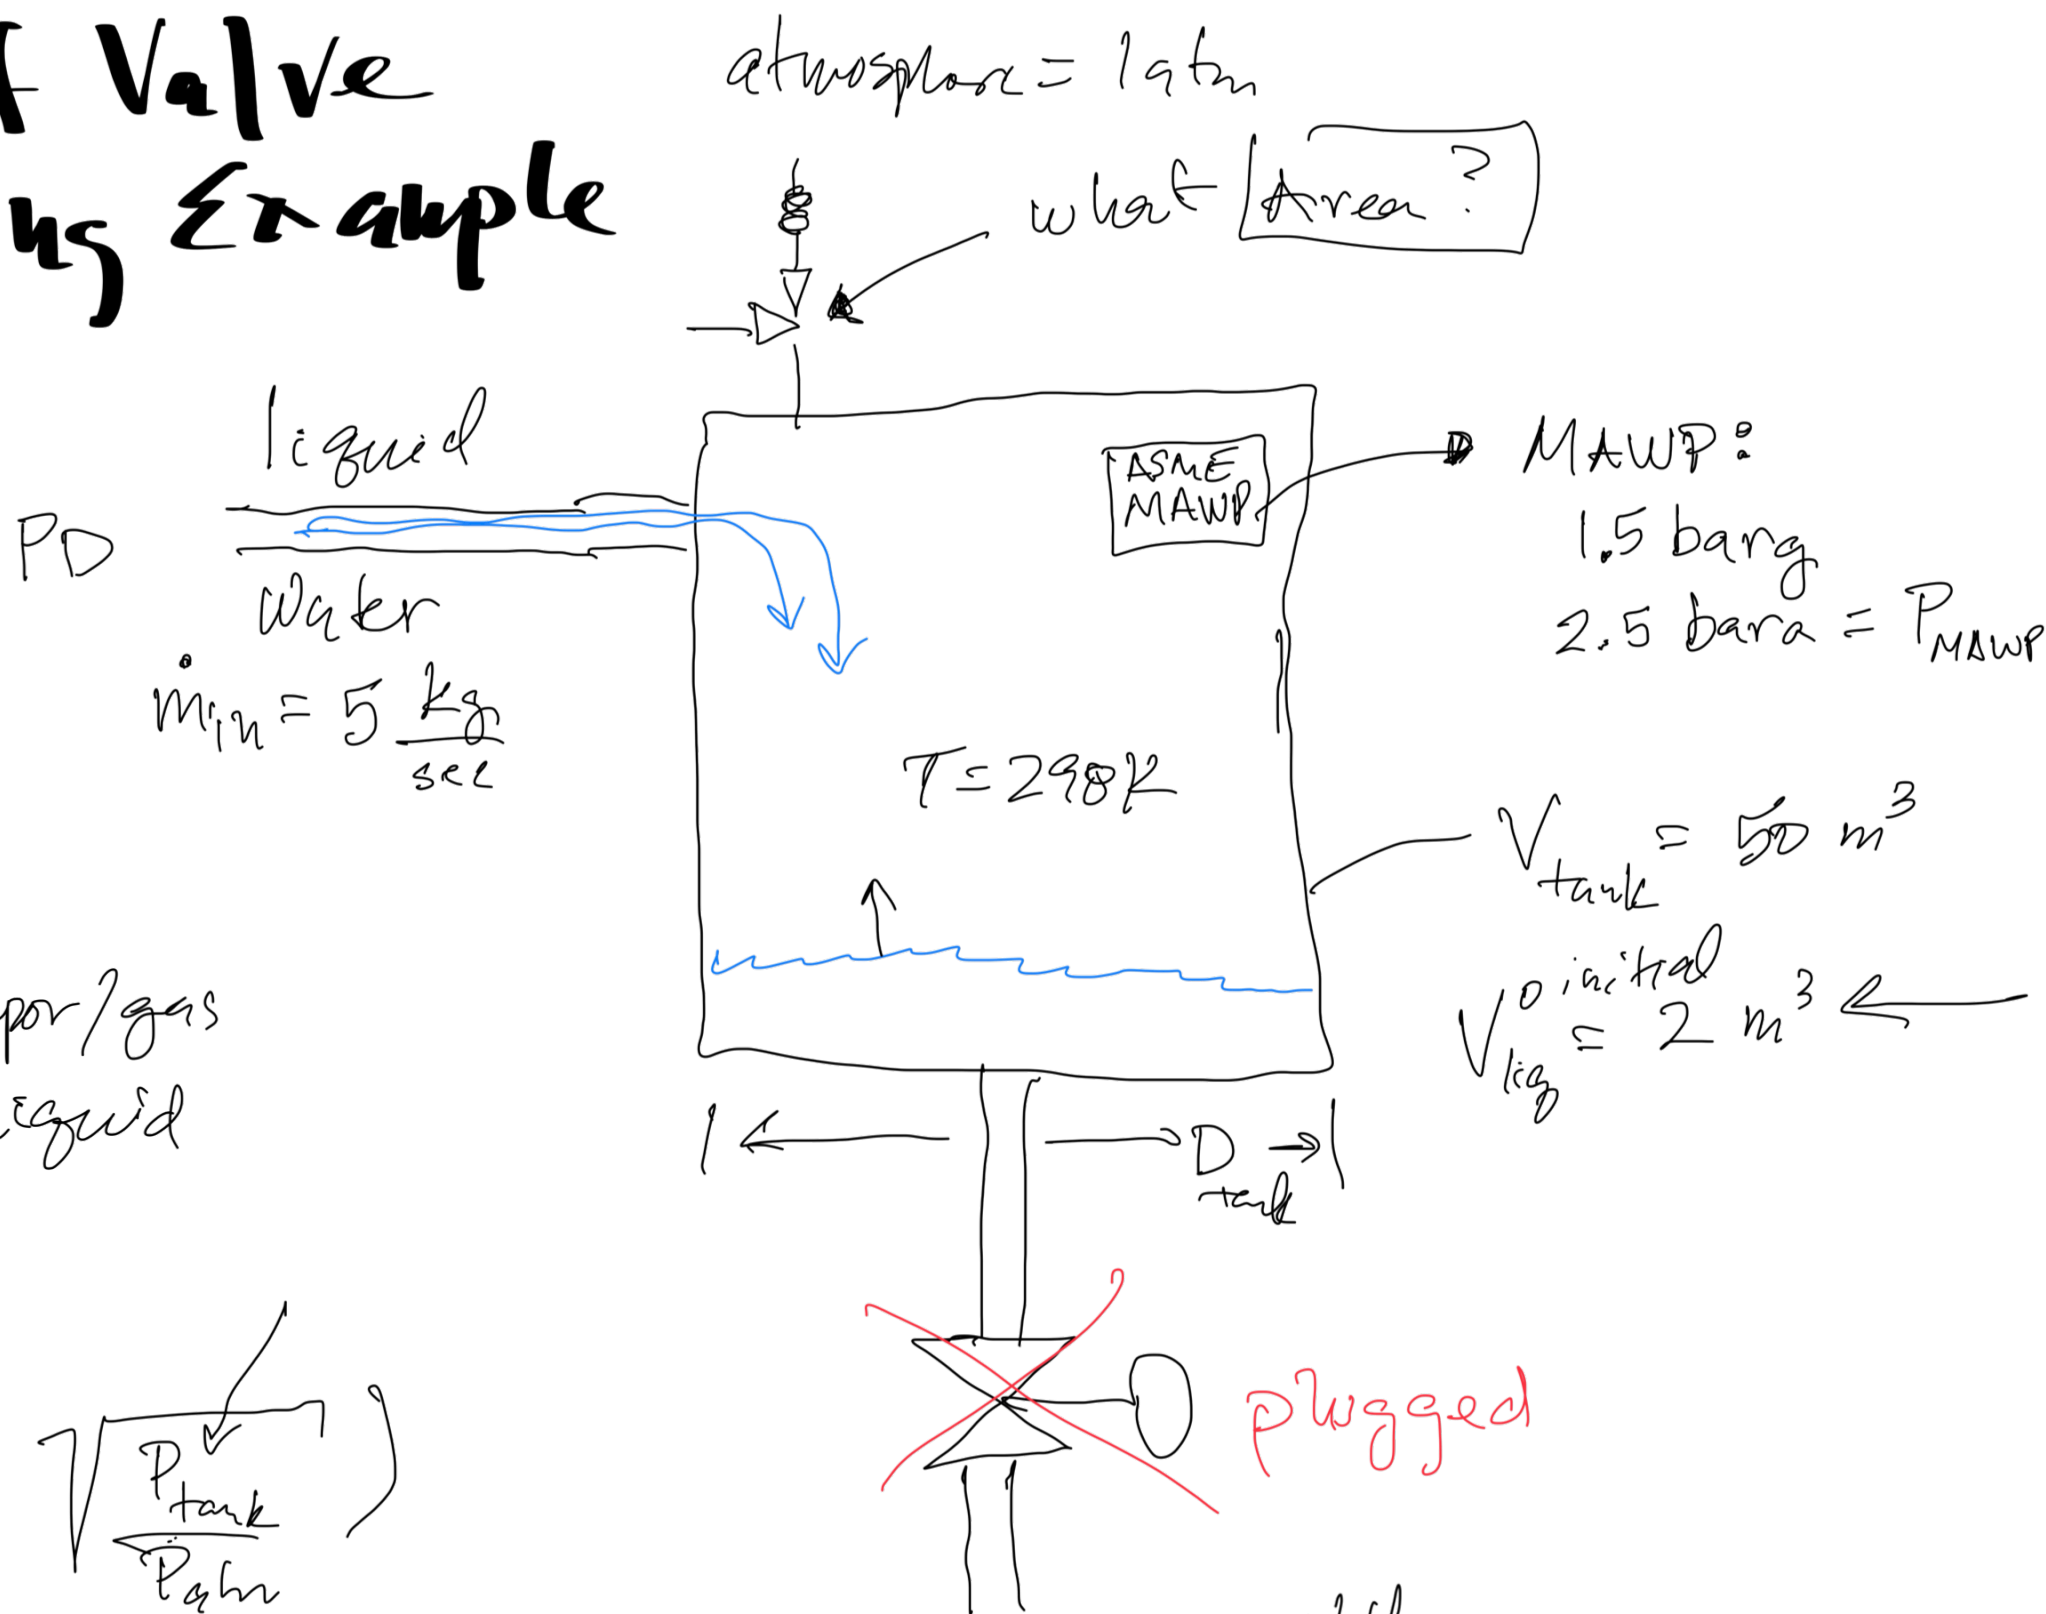 f Valve
ng Example
atmosphere = 1 atm
what Area?
liquid
PD
water
ṁin = 5 kg
sec
ASME
MAWP
MAWP:
1.5 barg
2.5 bara = PMAWP
T = 298K
Vtank = 50 m³
V⁰ initial
liq = 2 m³
por/gas
iquid
Dtank
plugged
√ Ptank )
Patm